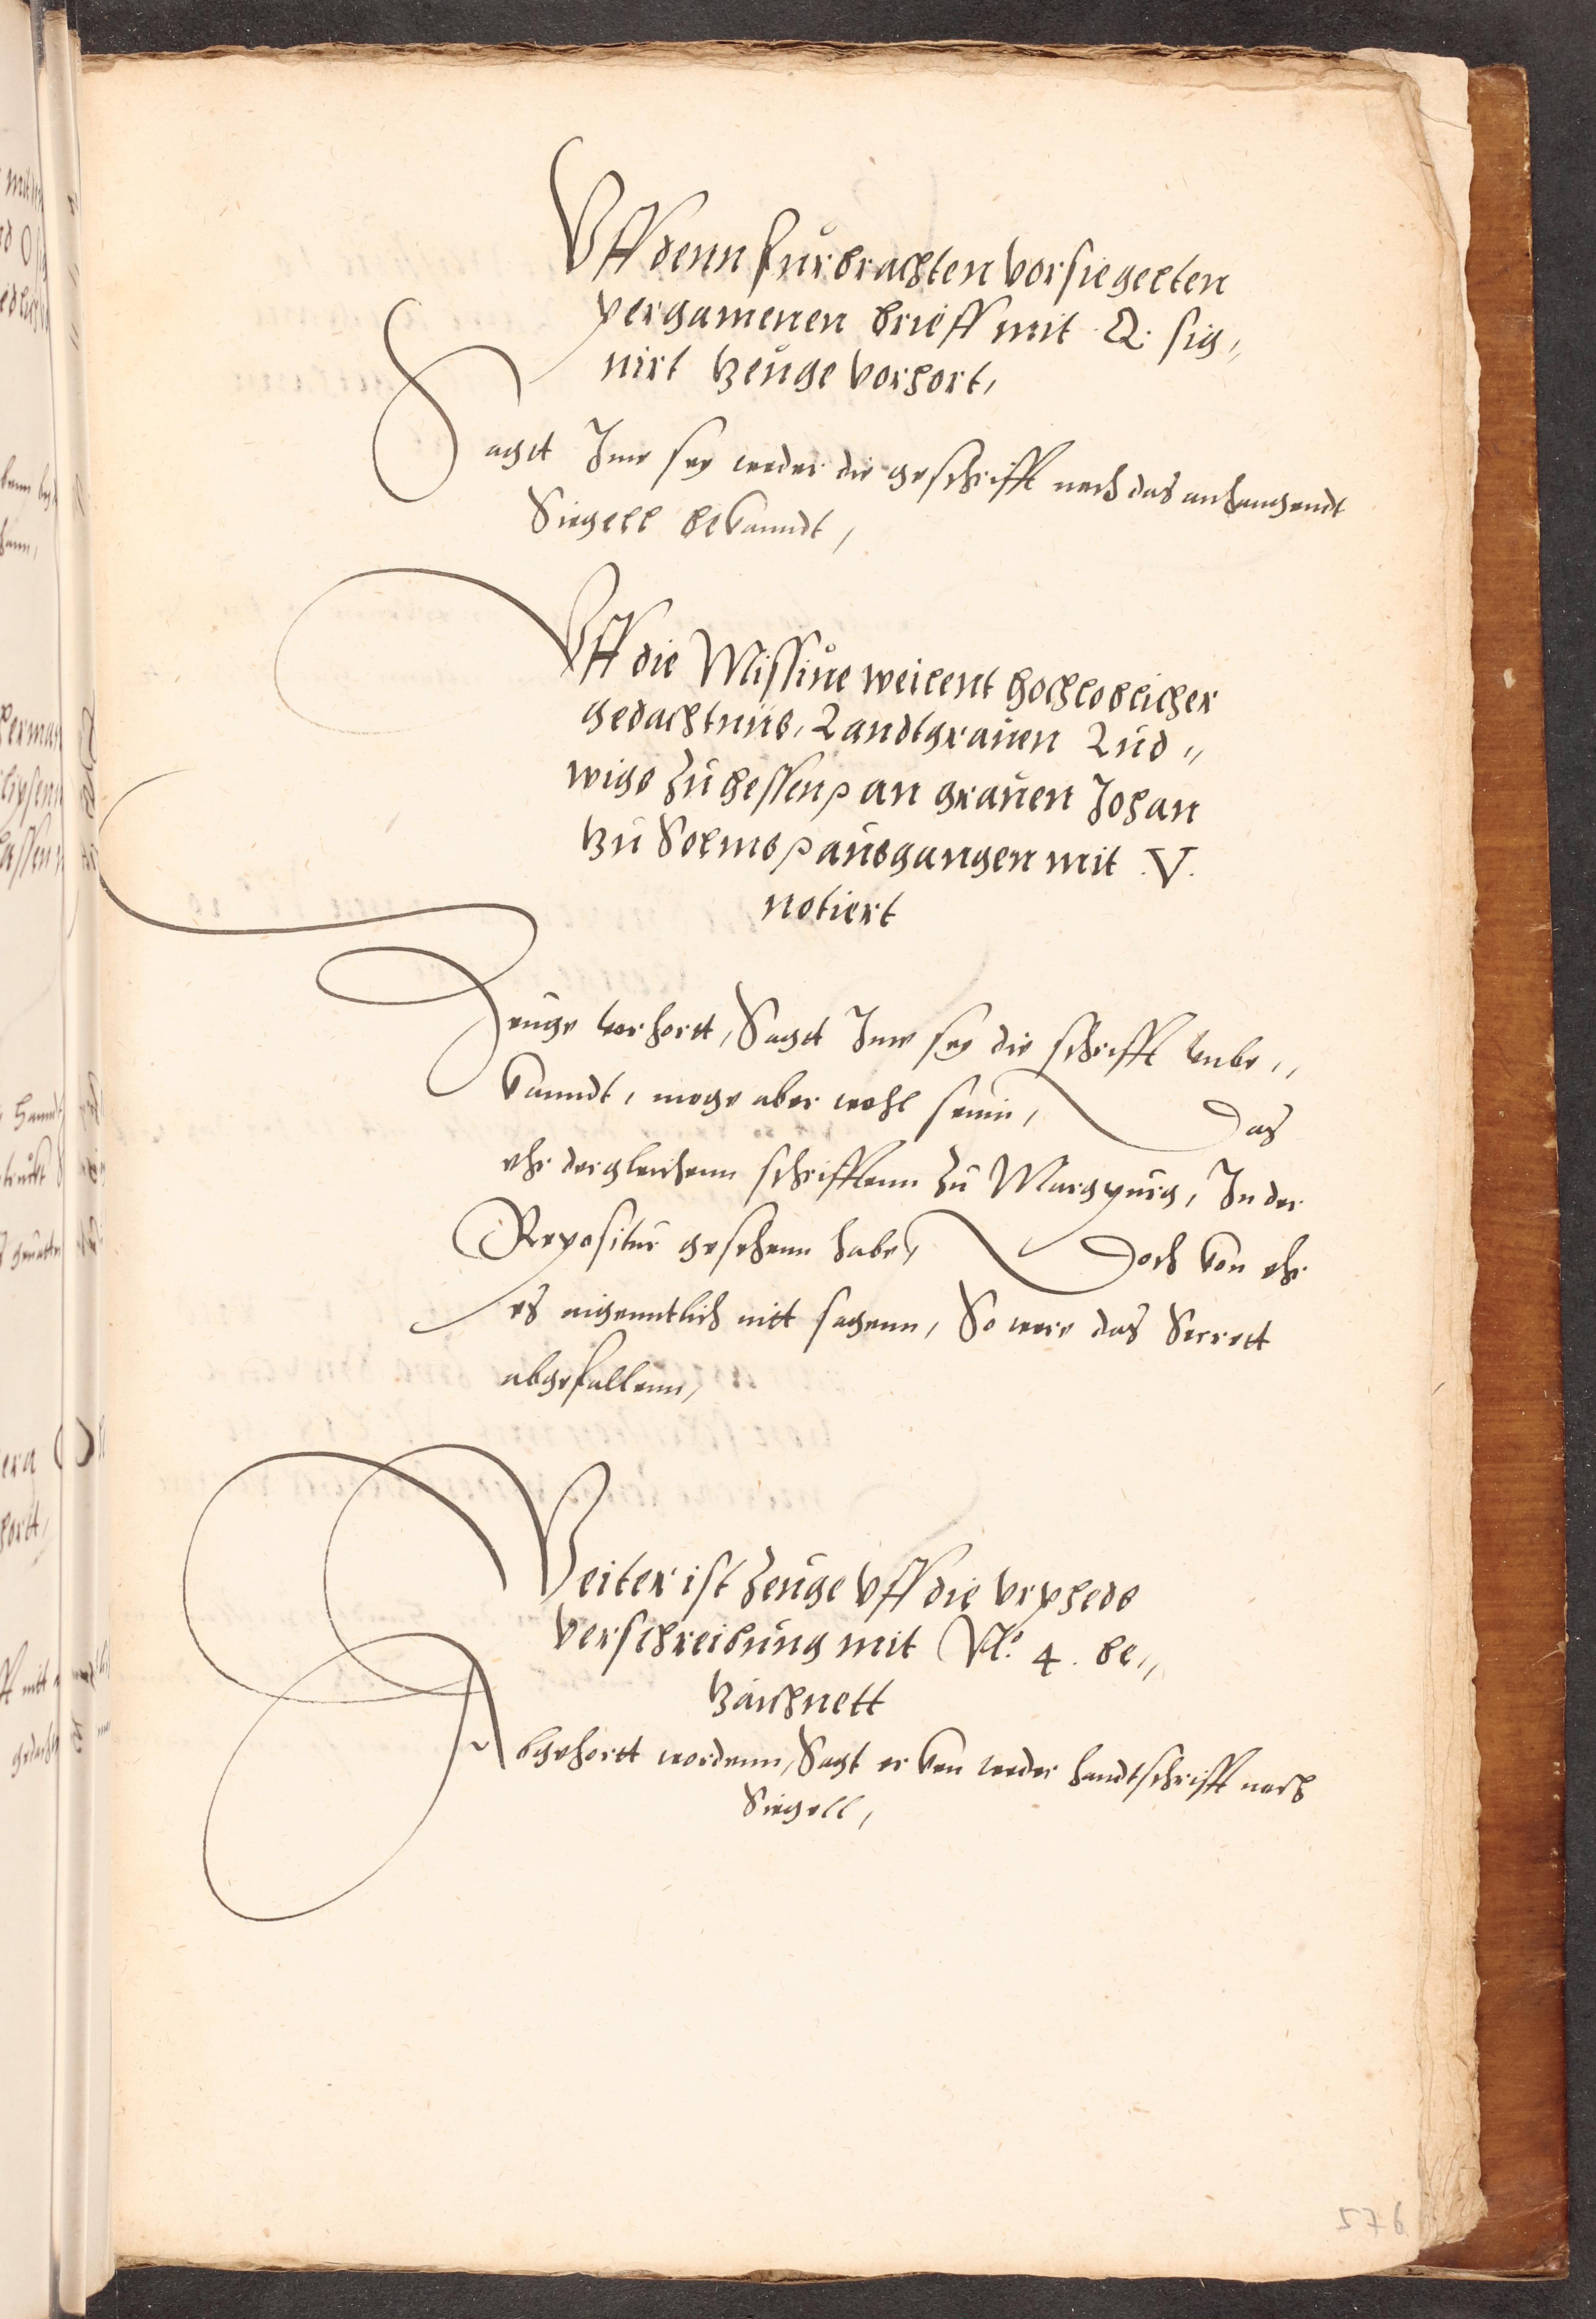 Vff denn furbrachten vorsiegelten
pergamenen brieff mit .Q. sig,,
nirt Zeuge vorhort,
Sagtt Ime sey weder die geschrifft noch das anhangendt
Siegell bekanndt,
Vff die Missiue weilent hochloblicher
gedachtnus, Landtgrauen Lud,,
wigs zu Hessen p an grauen Johan
zu Solms p ausgangen mit .V.
notiert
Zeuge vorhortt, Sagtt Ime sey die schrifft vnbe,,
kanndt, moge aber wohl seinn, Das
ehr dergleichenn schrifftenn zu Margpurg, In der
Repositur gesehenn habe, Doch kon ehr
es aigenntlich nitt sagenn, So were das Secrett
abgefallenn,
Weiter ist Zeuge vff die vrpheds
verschreibung mit No. 4. be,,
zaichnett
Abgehortt wordenn, Sagt er ken weder handtschrifft noch
Siegell,
576